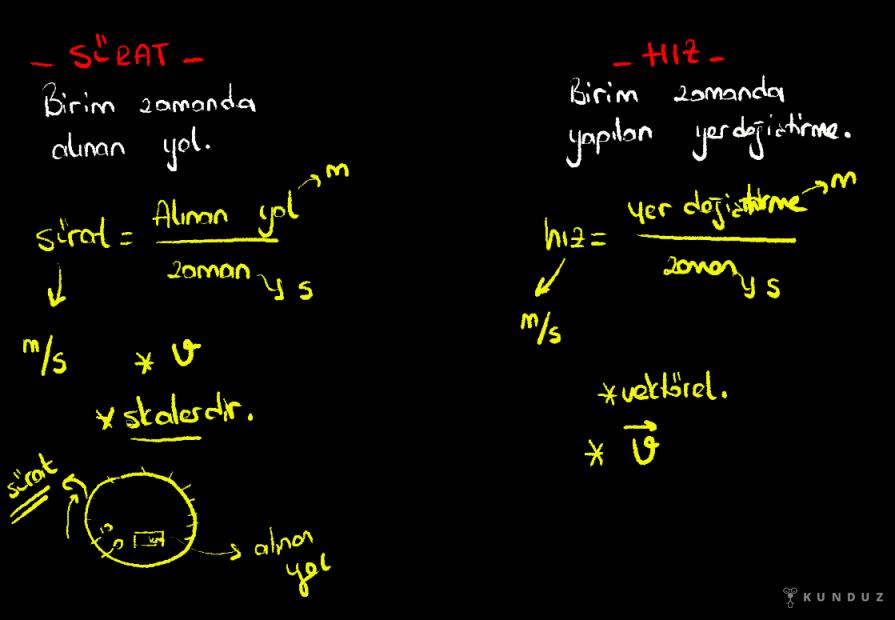 - SÜRAT -
Birim zamanda
alınan yol.
sürat = Alınan yol → m
zaman → s
m/s
* v
* skalerdir.
sürat
km
alınan
yol
- HIZ -
Birim zamanda
yapılan yerdeğiştirme.
hız = yer değiştirme → m
zaman → s
m/s
* vektörel.
* v⃗
KUNDUZ